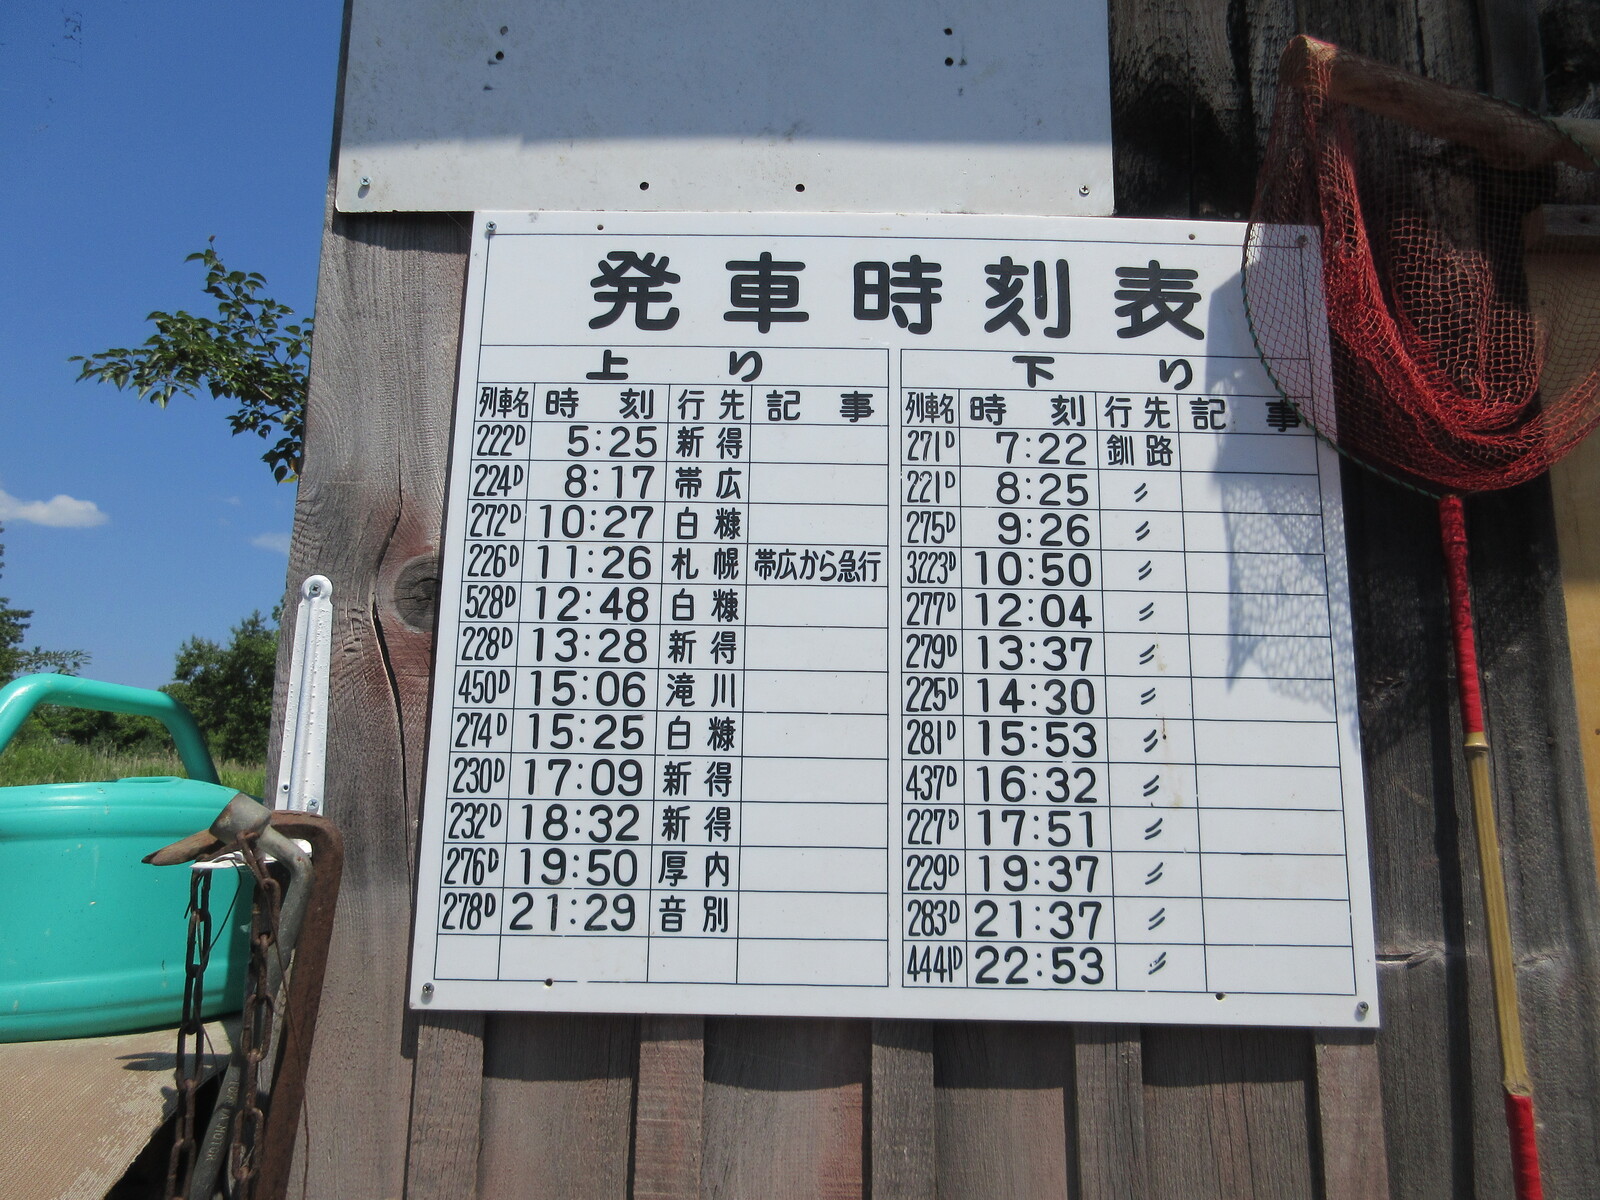 発車時刻表
上り
列車名 時刻 行先 記事
222D 5:25 新得
224D 8:17 帯広
272D 10:27 白糠
226D 11:26 札幌 帯広から急行
528D 12:48 白糠
228D 13:28 新得
450D 15:06 滝川
274D 15:25 白糠
230D 17:09 新得
232D 18:32 新得
276D 19:50 厚内
278D 21:29 音別
下り
列車名 時刻 行先 記事
271D 7:22 釧路
221D 8:25 〃
275D 9:26 〃
3223D 10:50 〃
277D 12:04 〃
279D 13:37 〃
225D 14:30 〃
281D 15:53 〃
437D 16:32 〃
227D 17:51 〃
229D 19:37 〃
283D 21:37 〃
4441D 22:53 〃